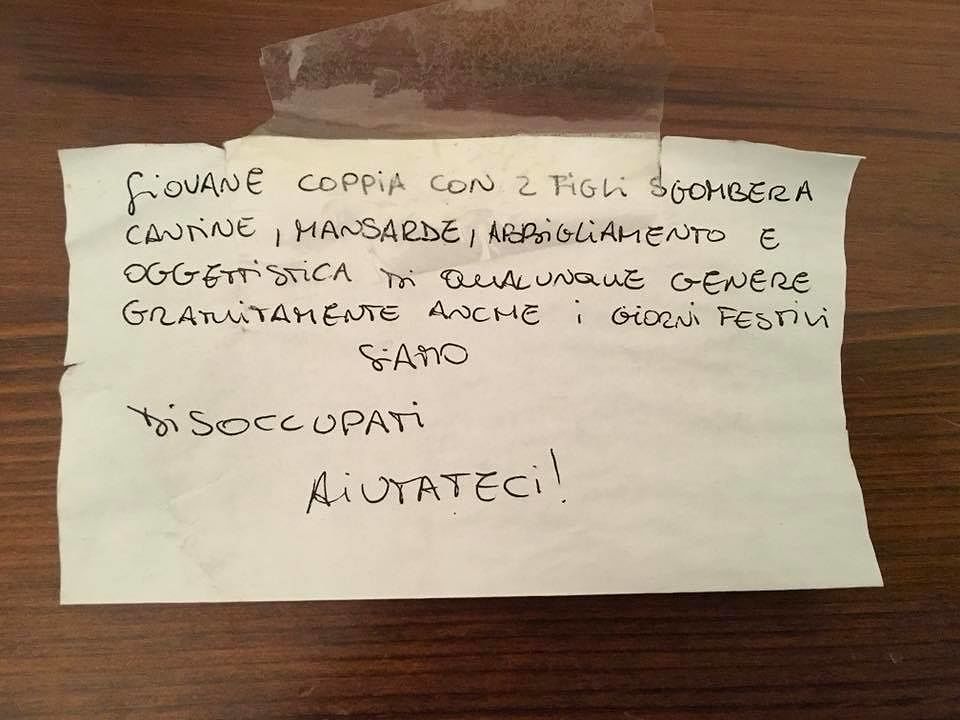 GIOVANE COPPIA CON 2 FIGLI SGOMBERA
CANTINE, MANSARDE, ABBIGLIAMENTO E
OGGETTISTICA DI QUALUNQUE GENERE
GRATUITAMENTE ANCHE I GIORNI FESTIVI
SIAMO
DISOCCUPATI
AIUTATECI!